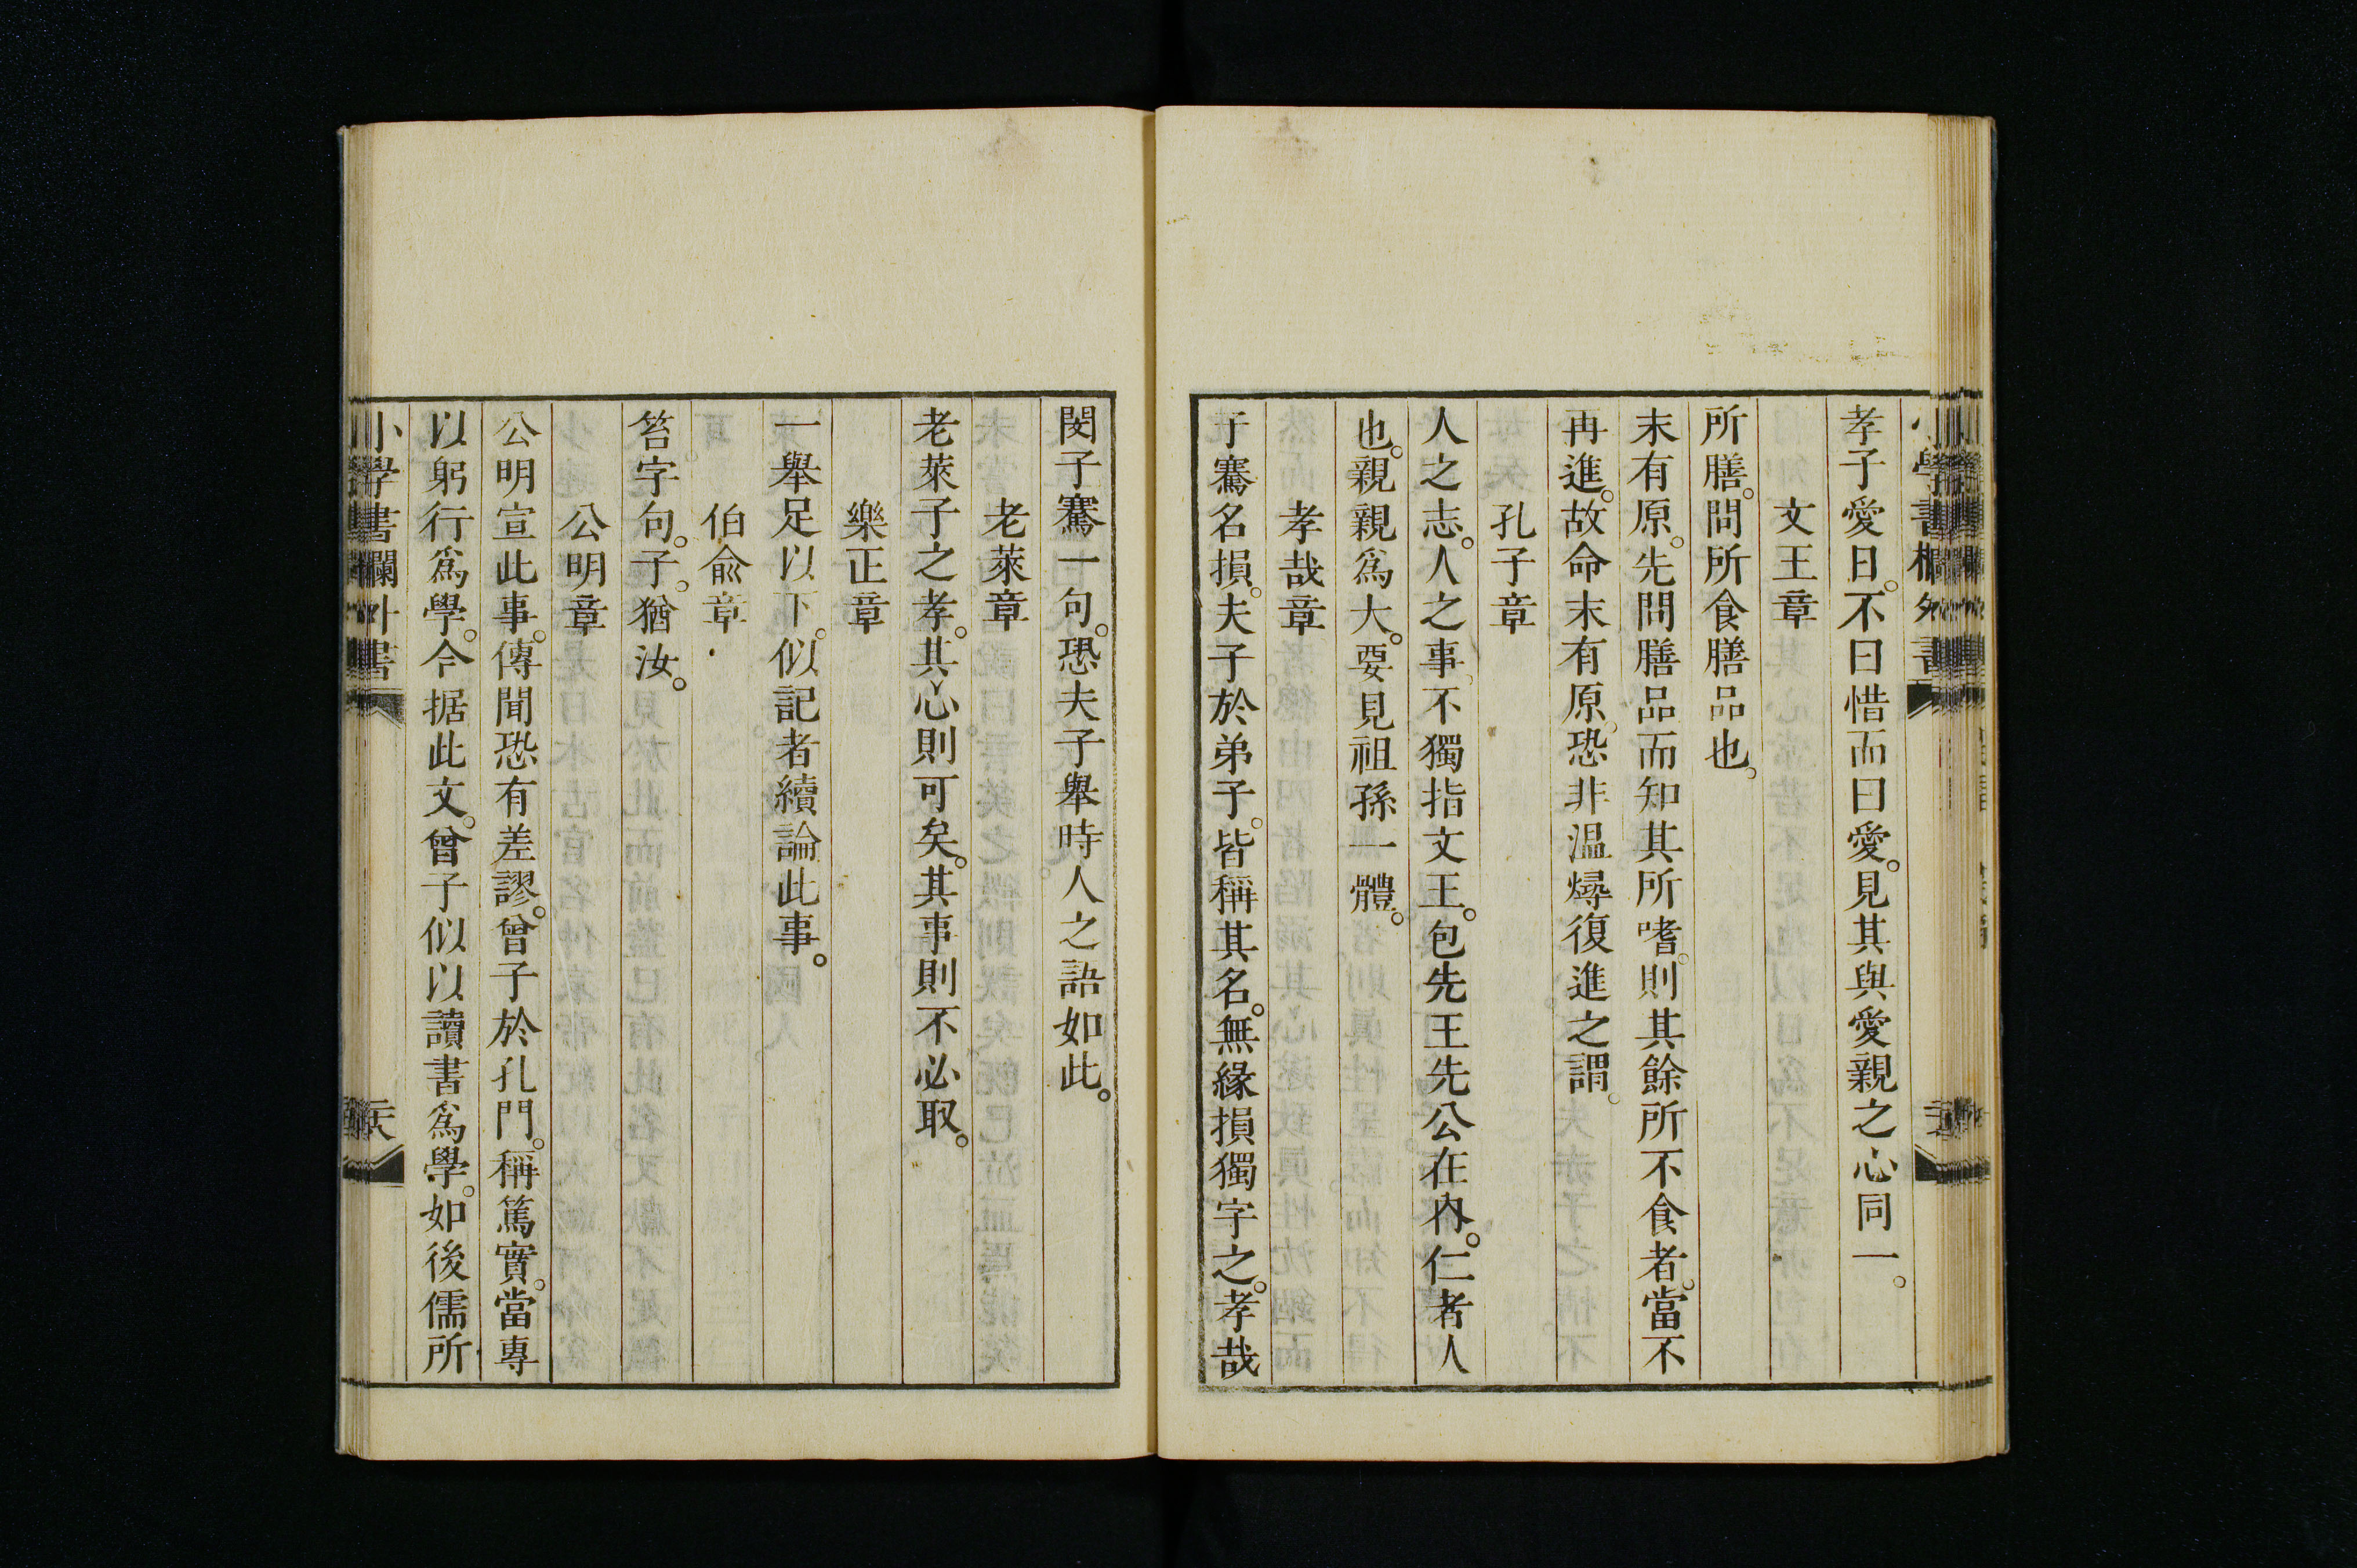 孝子愛日。不曰惜而曰愛。見其與愛親之心同一。
文王章
所膳。問所食膳品也。
末有原。先問膳品而知其所嗜。則其餘所不食者。當不
再進。故命末有原。恐非溫燖復進之謂。
孔子章
人之志。人之事。不獨指文王。包先王先公在內。仁者人
也。親親爲大。要見祖孫一體。
孝哉章
子騫名損。夫子於弟子。皆稱其名。無緣損獨字之。孝哉
閔子騫一句。恐夫子舉時人之語如此。
老萊章
老萊子之孝。其心則可矣。其事則不必取。
樂正章
一舉足以下。似記者續論此事。
伯兪章
笞字句。子。猶汝。
公明章
公明宣此事。傳聞恐有差謬。曾子於孔門。稱篤實。當專
以躬行爲學。今据此文。曾子似以讀書爲學。如後儒所
小學書欄外書